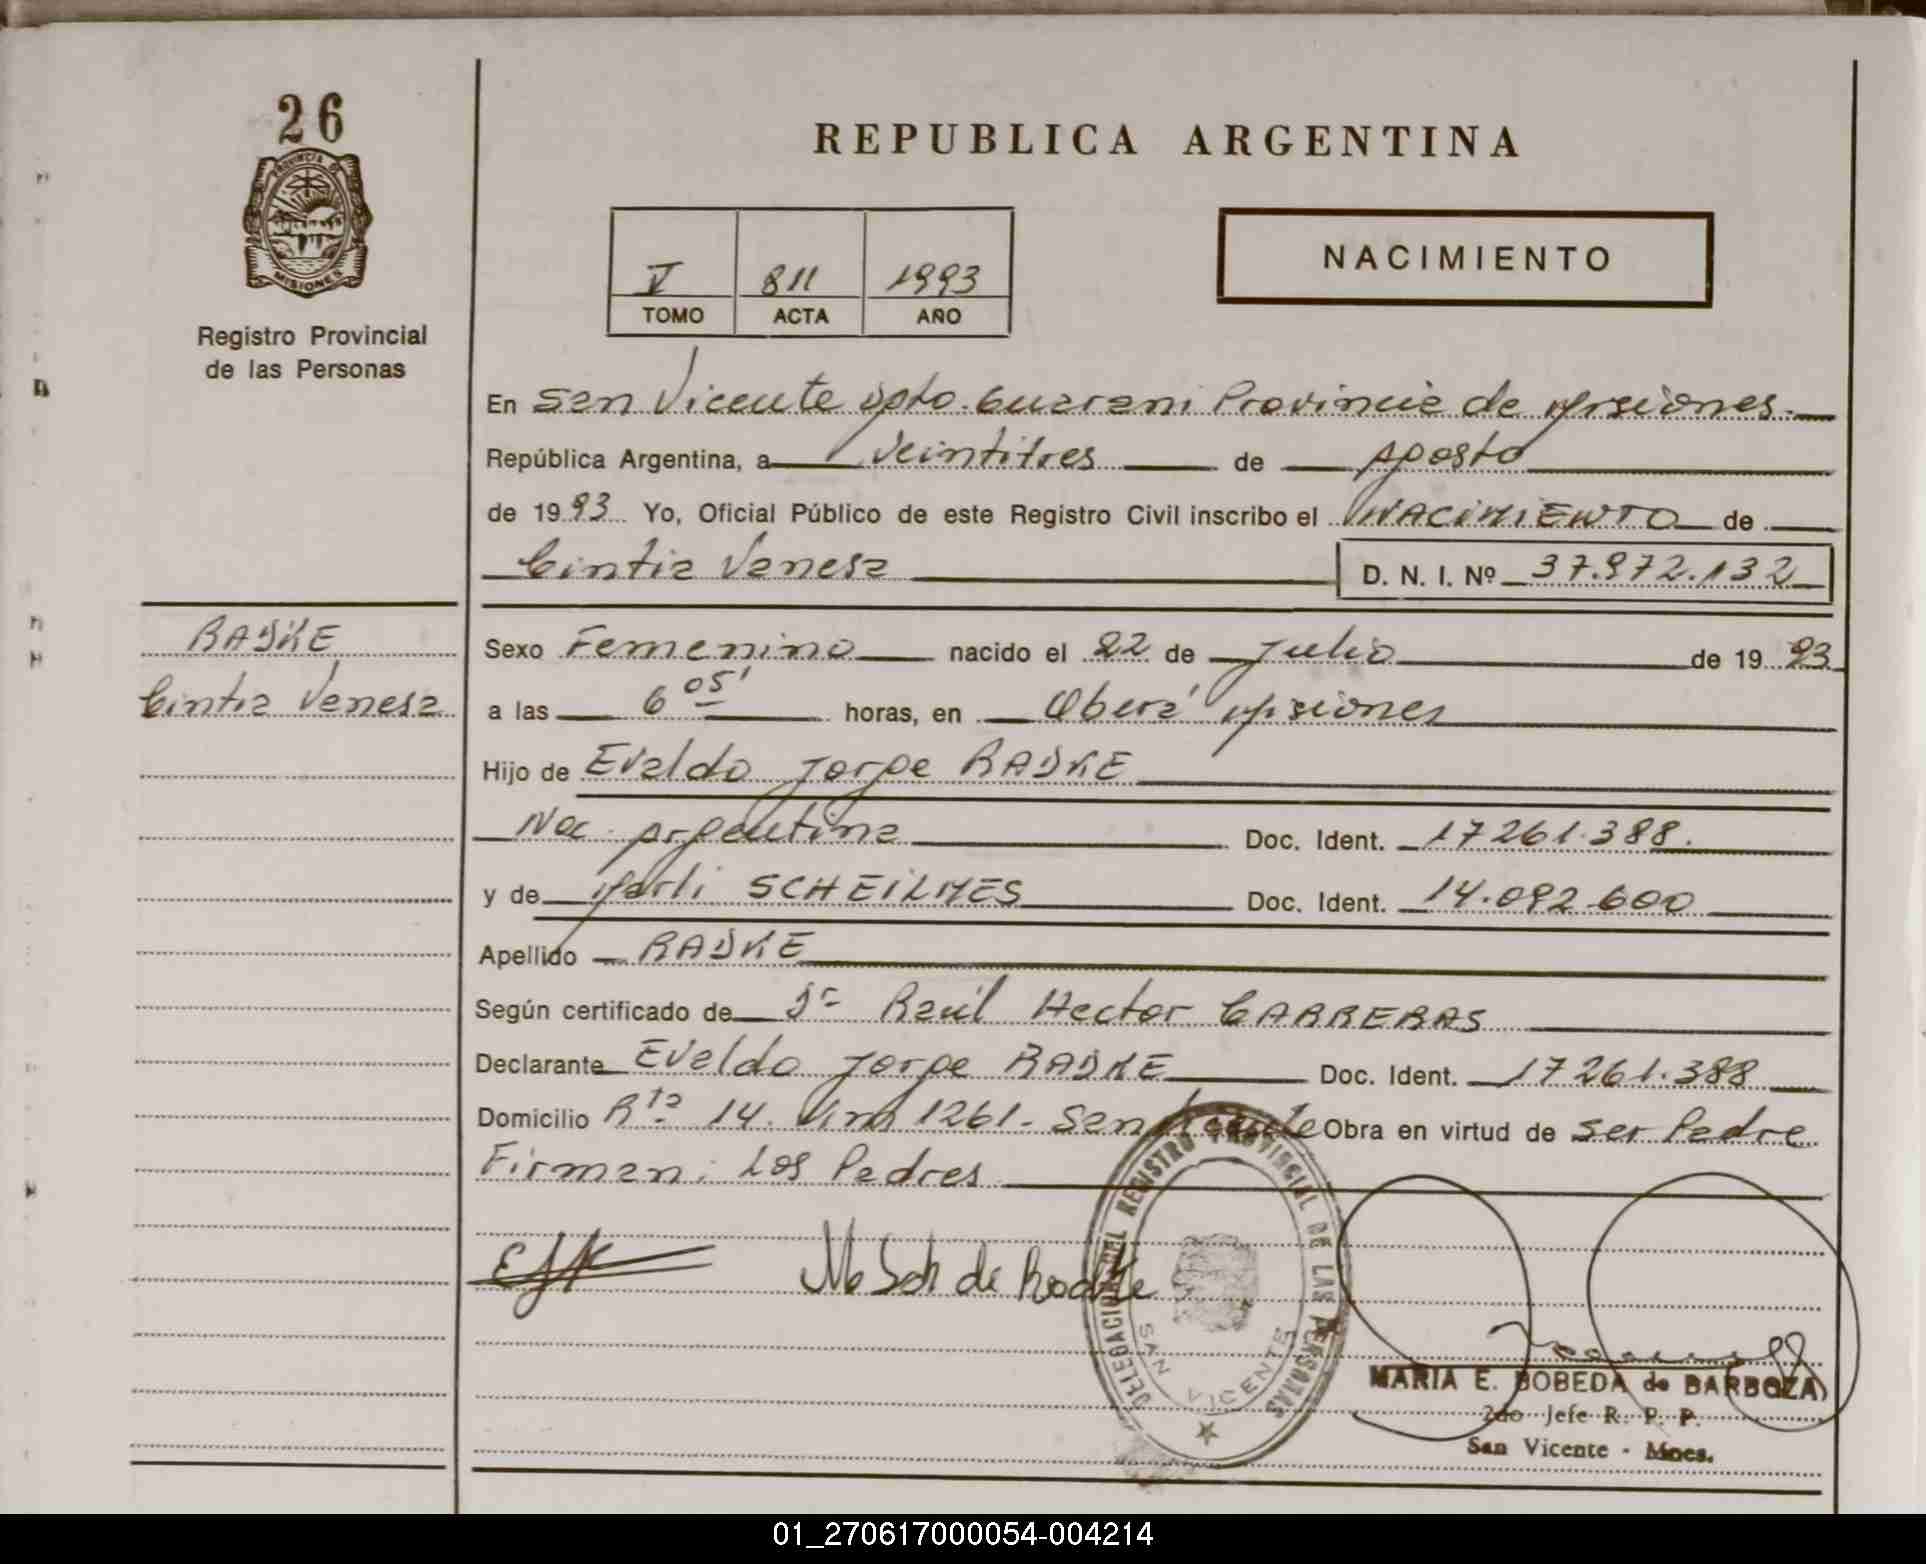 26
PROVINCIA DE
MISIONES
Registro Provincial
de las Personas
REPUBLICA ARGENTINA
V 811 1993
TOMO ACTA AÑO
NACIMIENTO
En San Vicente Dpto. Guarani Provincia de Misiones.
República Argentina, a veintitres de Agosto
de 1993 Yo, Oficial Público de este Registro Civil inscribo el NACIMIENTO de
Cintia Vanesa D. N. I. Nº 37.972.132
RADKE
Cintia Vanesa
Sexo Femenino nacido el 22 de Julio de 1993
a las 6 05' horas, en Oberá Misiones
Hijo de Evaldo Jorge RADKE
Nac. Argentina Doc. Ident. 17261.388.
y de Marli SCHEILMES Doc. Ident. 14.092.600
Apellido RADKE
Según certificado de Dr Raúl Hector CARRERAS
Declarante Evaldo Jorge RADKE Doc. Ident. 17261.388
Domicilio Rta 14. Km 1261- San Vicente Obra en virtud de ser Padre
Firman: Los Padres
M Sch de Radke
DELEGACION DEL REGISTRO PROVINCIAL DE LAS PERSONAS
SAN VICENTE
MARIA E. BOBEDA de BARBOZA
2do Jefe R. P. P.
San Vicente - Mnes.
01_270617000054-004214